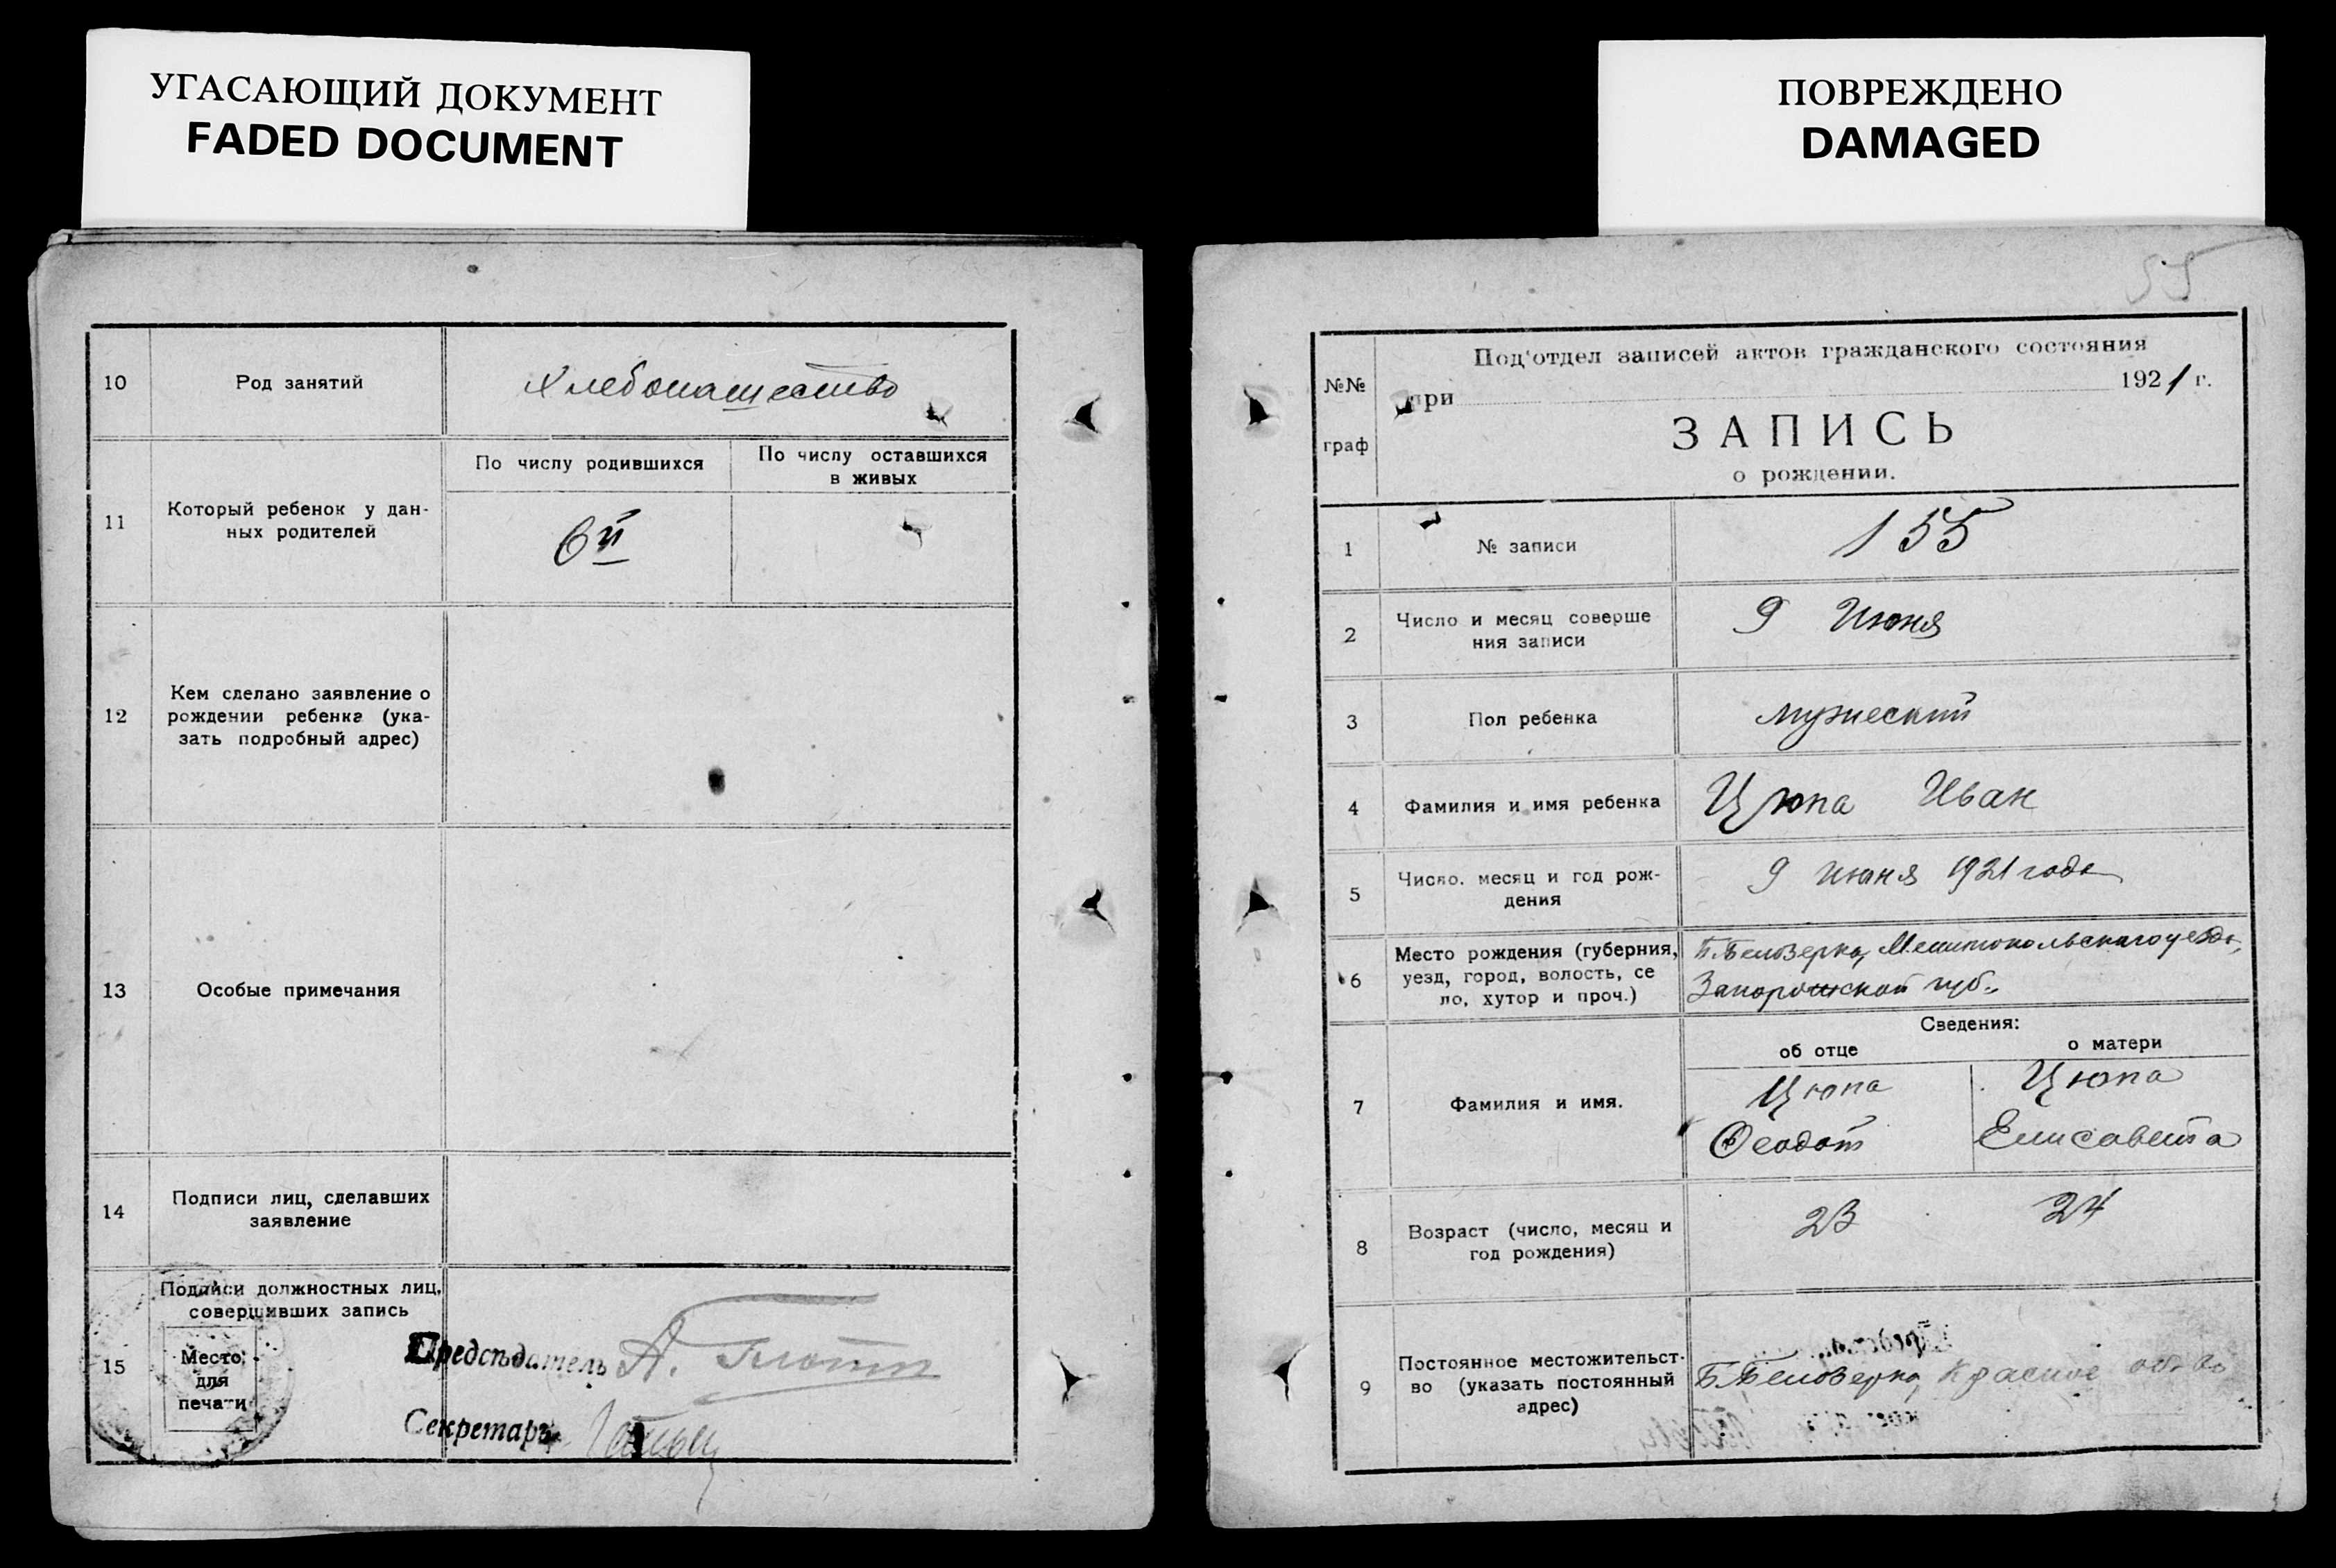 УГАСАЮЩИЙ ДОКУМЕНТ
FADED DOCUMENT
10
Род занятий
Хлебопашество
11
Который ребенок у дан-
ных родителей
По числу родившихся
По числу оставшихся
в живых
6й
12
Кем сделано заявление о
рождении ребенка (ука-
зать подробный адрес)
13
Особые примечания
14
Подписи лиц, сделавших
заявление
15
Подписи должностных лиц,
совершивших запись
Место
для
печати
Председатель А.
Секретарь
ПОВРЕЖДЕНО
DAMAGED
55
№№
граф
Под'отдел записей актов гражданского состояния
при 1921 г.
ЗАПИСЬ
о рождении.
1
№ записи
155
2
Число и месяц соверше
ния записи
9 Июня
3
Пол ребенка
мужеский
4
Фамилия и имя ребенка
Цюпа Иван
5
Число. месяц и год рож-
дения
9 июня 1921 года
6
Место рождения (губерния,
уезд, город, волость, се
ло, хутор и проч.)
Б. Белозерка, Мелитопольскаго уезда,
Запорожской губ.
Сведения:
об отце
о матери
7
Фамилия и имя.
Цюпа
Феодот
Цюпа
Елисавета
8
Возраст (число, месяц и
год рождения)
23
24
9
Постоянное местожительст-
во (указать постоянный
адрес)
Б. Белозерка, Красное об-во